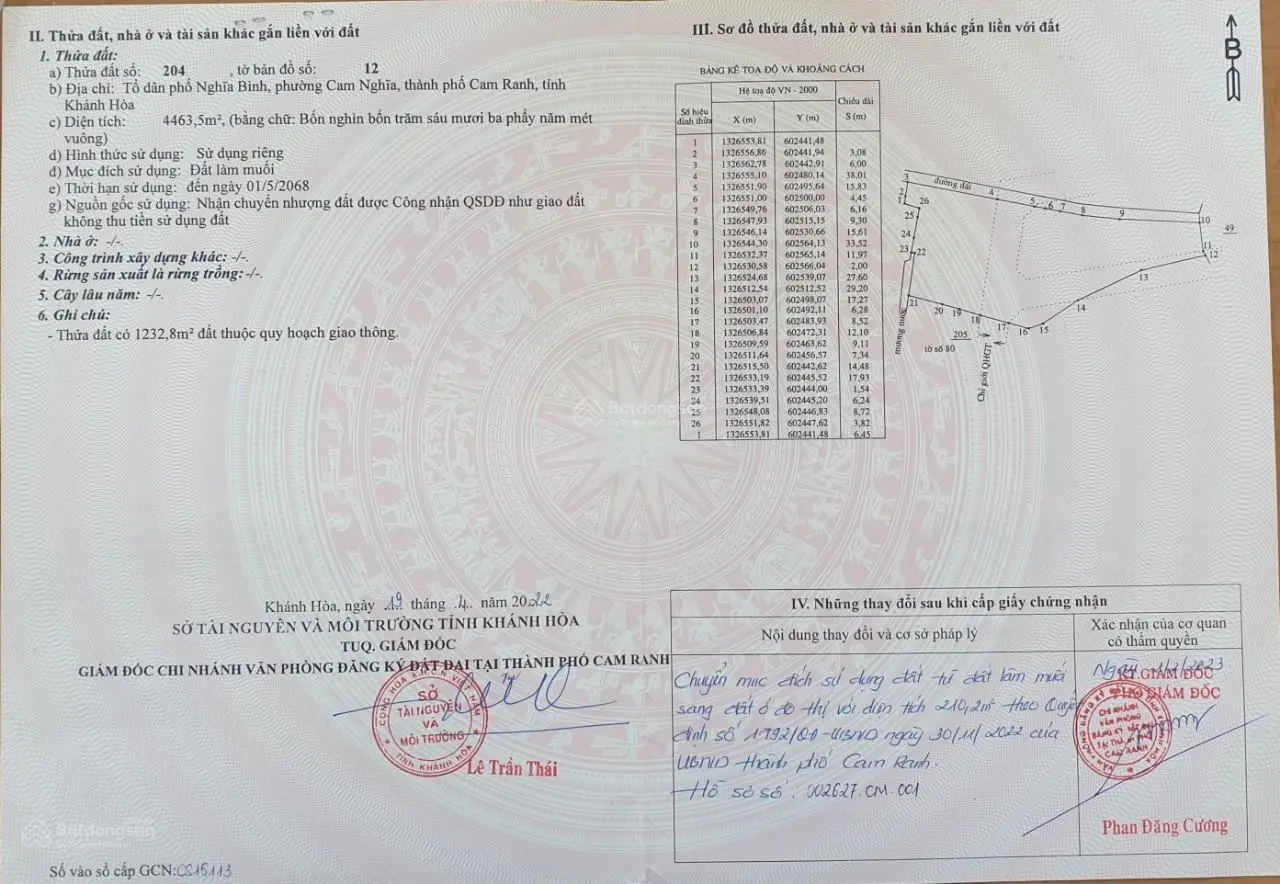 II. Thửa đất, nhà ở và tài sản khác gắn liền với đất
1. Thửa đất:
a) Thửa đất số: 204 , tờ bản đồ số: 12
b) Địa chỉ: Tổ dân phố Nghĩa Bình, phường Cam Nghĩa, thành phố Cam Ranh, tỉnh
Khánh Hòa
c) Diện tích: 4463,5m², (bằng chữ: Bốn nghìn bốn trăm sáu mươi ba phẩy năm mét
vuông)
d) Hình thức sử dụng: Sử dụng riêng
đ) Mục đích sử dụng: Đất làm muối
e) Thời hạn sử dụng: đến ngày 01/5/2068
g) Nguồn gốc sử dụng: Nhận chuyển nhượng đất được Công nhận QSDĐ như giao đất
không thu tiền sử dụng đất
2. Nhà ở: -/-.
3. Công trình xây dựng khác: -/-.
4. Rừng sản xuất là rừng trồng: -/-.
5. Cây lâu năm: -/-.
6. Ghi chú:
- Thửa đất có 1232,8m² đất thuộc quy hoạch giao thông.
Khánh Hòa, ngày 19 tháng 4 năm 2022
SỞ TÀI NGUYÊN VÀ MÔI TRƯỜNG TỈNH KHÁNH HÒA
TUQ. GIÁM ĐỐC
GIÁM ĐỐC CHI NHÁNH VĂN PHÒNG ĐĂNG KÝ ĐẤT ĐAI TẠI THÀNH PHỐ CAM RANH
SỞ
TÀI NGUYÊN
VÀ
MÔI TRƯỜNG
TỈNH KHÁNH HÒA
Lê Trần Thái
Batdongsan
Số vào sổ cấp GCN: CS15113
III. Sơ đồ thửa đất, nhà ở và tài sản khác gắn liền với đất
B
BẢNG KÊ TOẠ ĐỘ VÀ KHOẢNG CÁCH
Số hiệu đỉnh thửa Hệ toạ độ VN - 2000 Chiều dài
X (m) Y (m) S (m)
1 1326553,81 602441,48
2 1326556,86 602441,94 3,08
3 1326562,78 602442,91 6,00
4 1326555,10 602480,14 38,01
5 1326551,90 602495,64 15,83
6 1326551,00 602500,00 4,45
7 1326549,76 602506,03 6,16
8 1326547,93 602515,15 9,30
9 1326546,14 602530,66 15,61
10 1326544,30 602564,13 33,52
11 1326532,37 602565,14 11,97
12 1326530,58 602566,04 2,00
13 1326524,68 602539,07 27,60
14 1326512,54 602512,52 29,20
15 1326503,07 602498,07 17,27
16 1326501,10 602492,11 6,28
17 1326503,47 602483,93 8,52
18 1326506,84 602472,31 12,10
19 1326509,59 602463,62 9,11
20 1326511,64 602456,57 7,34
21 1326515,50 602442,62 14,48
22 1326533,19 602445,52 17,93
23 1326533,39 602444,00 1,54
24 1326539,51 602445,20 6,24
25 1326548,08 602446,83 8,72
26 1326551,82 602447,62 3,82
1 1326553,81 602441,48 6,45
Batdongsan
3 đường đất 4 5 6 7 8 9 10
2 1 26 25 24 23 22 21
49
11 12 13 14 15 16 17 18 19 20
205
tờ số 80
mương nước
Chỉ giới QHGT
IV. Những thay đổi sau khi cấp giấy chứng nhận
Nội dung thay đổi và cơ sở pháp lý
Xác nhận của cơ quan
có thẩm quyền
Chuyển mục đích sử dụng đất từ đất làm muối
sang đất ở đô thị với diện tích 210,2m² theo Quyết
định số 1792/QĐ-UBND ngày 30/11/2022 của
UBND thành phố Cam Ranh.
Hồ sơ số: 002627.CM.001
KT.GIÁM ĐỐC
PHÓ GIÁM ĐỐC
CHI NHÁNH
VĂN PHÒNG
ĐĂNG KÝ ĐẤT ĐAI
CAM RANH
Phan Đăng Cương